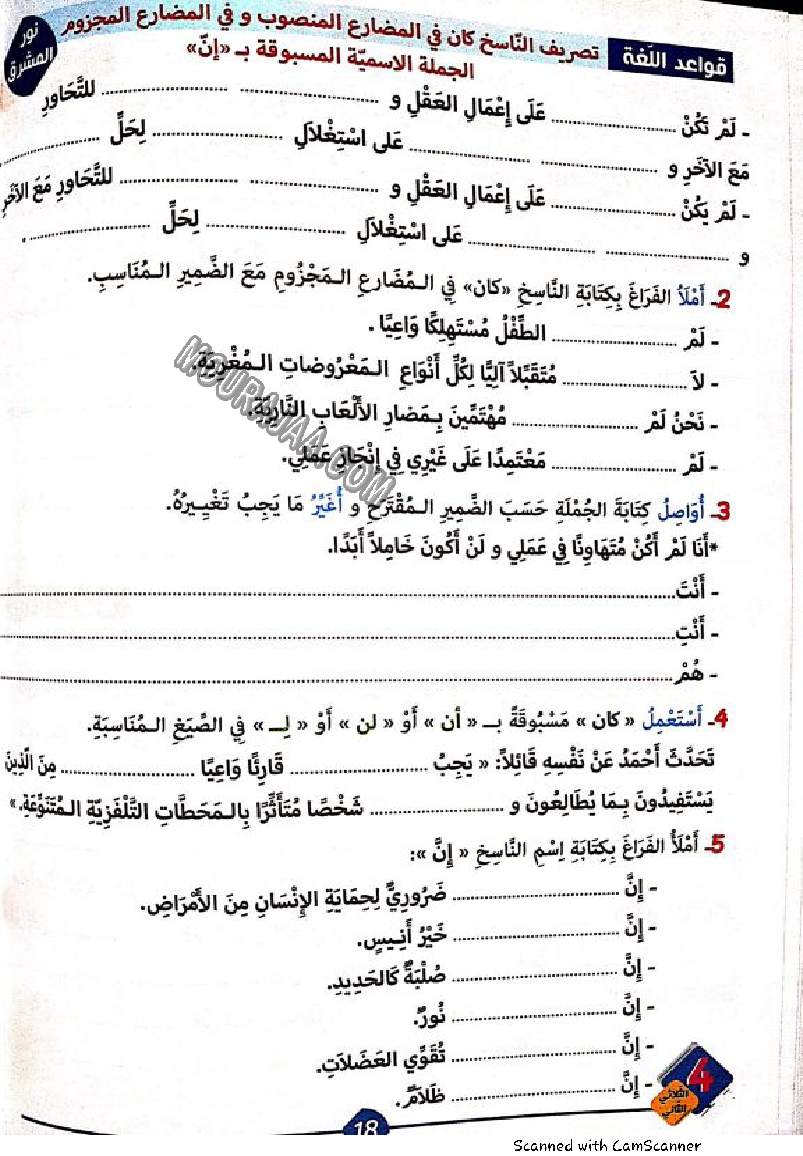 نور المشرق
قواعد اللّغة
تصريف النّاسخ كان في المضارع المنصوب و في المضارع المجزوم
الجملة الاسميّة المسبوقة بـ «إنّ»
- لَمْ تَكُنْ .................... عَلَى إِعْمَالِ العَقْلِ و .................... .................... للتَّحَاورِ
مَعَ الآخَرِ و .................... .................... عَلى اسْتِغْلاَلِ .................... لِحَلِّ ....................
- لَمْ يَكُنْ .................... عَلَى إِعْمَالِ العَقْلِ و .................... .................... للتَّحَاورِ مَعَ الآخَرِ
و .................... .................... عَلى اسْتِغْلاَلِ .................... لِحَلِّ .................... .
2ـ أَمْلَأُ الفَرَاغَ بِكِتَابَةِ النَّاسِخِ «كان» فِي الـمُضَارعِ الـمَجْزُومِ مَعَ الضَّمِيرِ الـمُنَاسِبِ.
- لَمْ .................... الطِّفْلُ مُسْتَهِلِكًا وَاعِيًا .
- لاَ .................... مُتَقَبِّلاً آلِيًّا لِكُلِّ أَنْوَاعِ الـمَعْرُوضاتِ الـمُغْرِيَةِ.
- نَحْنُ لَمْ .................... مُهْتَمِّينَ بِـمَضارِ الأَلْعَابِ النَّارِيَّةِ.
- لَمْ .................... مَعْتَمِدًا عَلَى غَيْرِي فِي إِنْجَازٍ عَمَلِي.
MOURAJAA.COM
3ـ أُوَاصِلُ كِتَابَةَ الجُمْلَةِ حَسَبَ الضَّمِيرِ الـمُقْتَرَحِ و أُغَيِّرُ مَا يَجِبُ تَغْيِـيرُهُ.
*أَنَا لَمْ أَكُنْ مُتَهَاوِنًا فِي عَمَلِي و لَنْ أَكُونَ خَامِلاً أَبَدًا.
- أَنْتَ....................
- أَنْتِ....................
- هُمْ....................
4ـ أَسْتَعْمِلُ « كان » مَسْبُوقَةً بـ « أن » أَوْ « لن » أَوْ « لِـ » فِي الصِّيَغِ الـمُنَاسَبَةِ.
تَحَدَّثَ أَحْمَدُ عَنْ نَفْسِهِ قَائِلاً: « يَجِبُ .................... قَارِئًا وَاعِيًا .................... مِنَ الَّذِينَ
يَسْتَفِيدُونَ بِـمَا يُطَالِعُونَ و .................... شَخْصًا مُتَأَثِّرًا بِالـمَحَطَّاتِ التَّلْفَزِيَّةِ الـمُتَنَوِّعَةِ.»
5ـ أَمْلَأُ الفَرَاغَ بِكِتَابَةِ اِسْمِ النَّاسِخِ « إِنَّ »:
- إِنَّ .................... ضَرُورِيٌّ لِحِمَايَةِ الإِنْسَانِ مِنَ الأَمْرَاضِ.
- إِنَّ .................... خَيْرُ أَنِـيسٍ.
- إِنَّ .................... صُلْبَةٌ كَالحَدِيدِ.
- إِنَّ .................... نُورٌ.
- إِنَّ .................... تُقَوِّي العَضَلاَتِ.
- إِنَّ .................... ظَلاَمٌ.
4
الثلاثي الثاني
18
Scanned with CamScanner